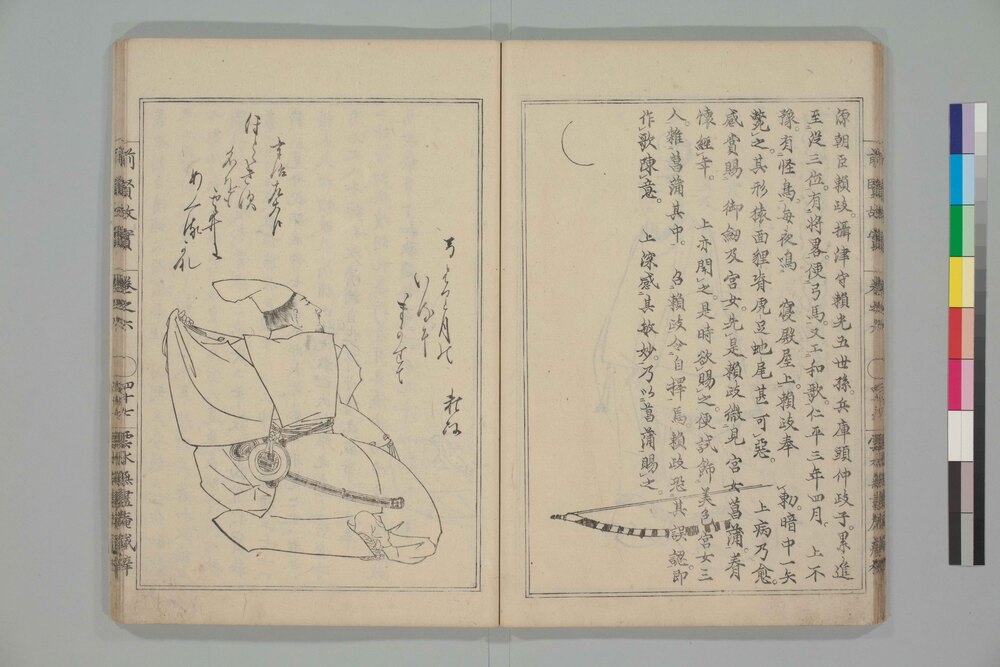 源朝臣頼政。攝津守頼光五世孫。兵庫頭仲政子。累進
至從三位。有將畧。便弓馬。又工和歌。仁平三年四月。上不
豫。有怪鳥。每夜鳴　寢殿屋上。頼政奉　勅。暗中一矢
斃之。其形猿面狸脊虎足蛇尾甚可惡。　上病乃愈。
感賞賜　御劔及宮女。先是頼政微見　宮女菖蒲。眷
懷經年。　上亦聞之。是時欲賜之。便試飾美色宮女三
人。雜菖蒲其中。　召頼政令自擇焉。頼政恐其誤認。即
作歌陳意。　上深感其敏妙。乃以菖蒲賜之。
弓はり月の
いるに
まかせて
頼政
宇治左大臣
ほとゝきす
名をは
雲井に
あくるかな
前賢故實
卷之六
四十七
雲水無盡庵藏梓